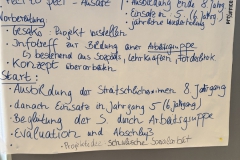 Ausbildung ende 8. Jahrg
Einsatz in 5. (6. Jahrg.)
Vorbereitung
jährliche Wiederholung
Gesako: Projekt vorstellen
Infotreff zur Bildung einer Arbeitsgruppe
bestehend aus Sozialp., Lehrkräften, Förderstck
Konzept überarbeiten
Start:
Ausbildung der Streitschlichterinnen 8. Jahrgang
danach Einsatz in Jahrgang 5 (6. Jahrgang)
Begleitung der S durch Arbeitsgruppe
Evaluation und Abschluß
Projekt der schulischen Sozialarbeit